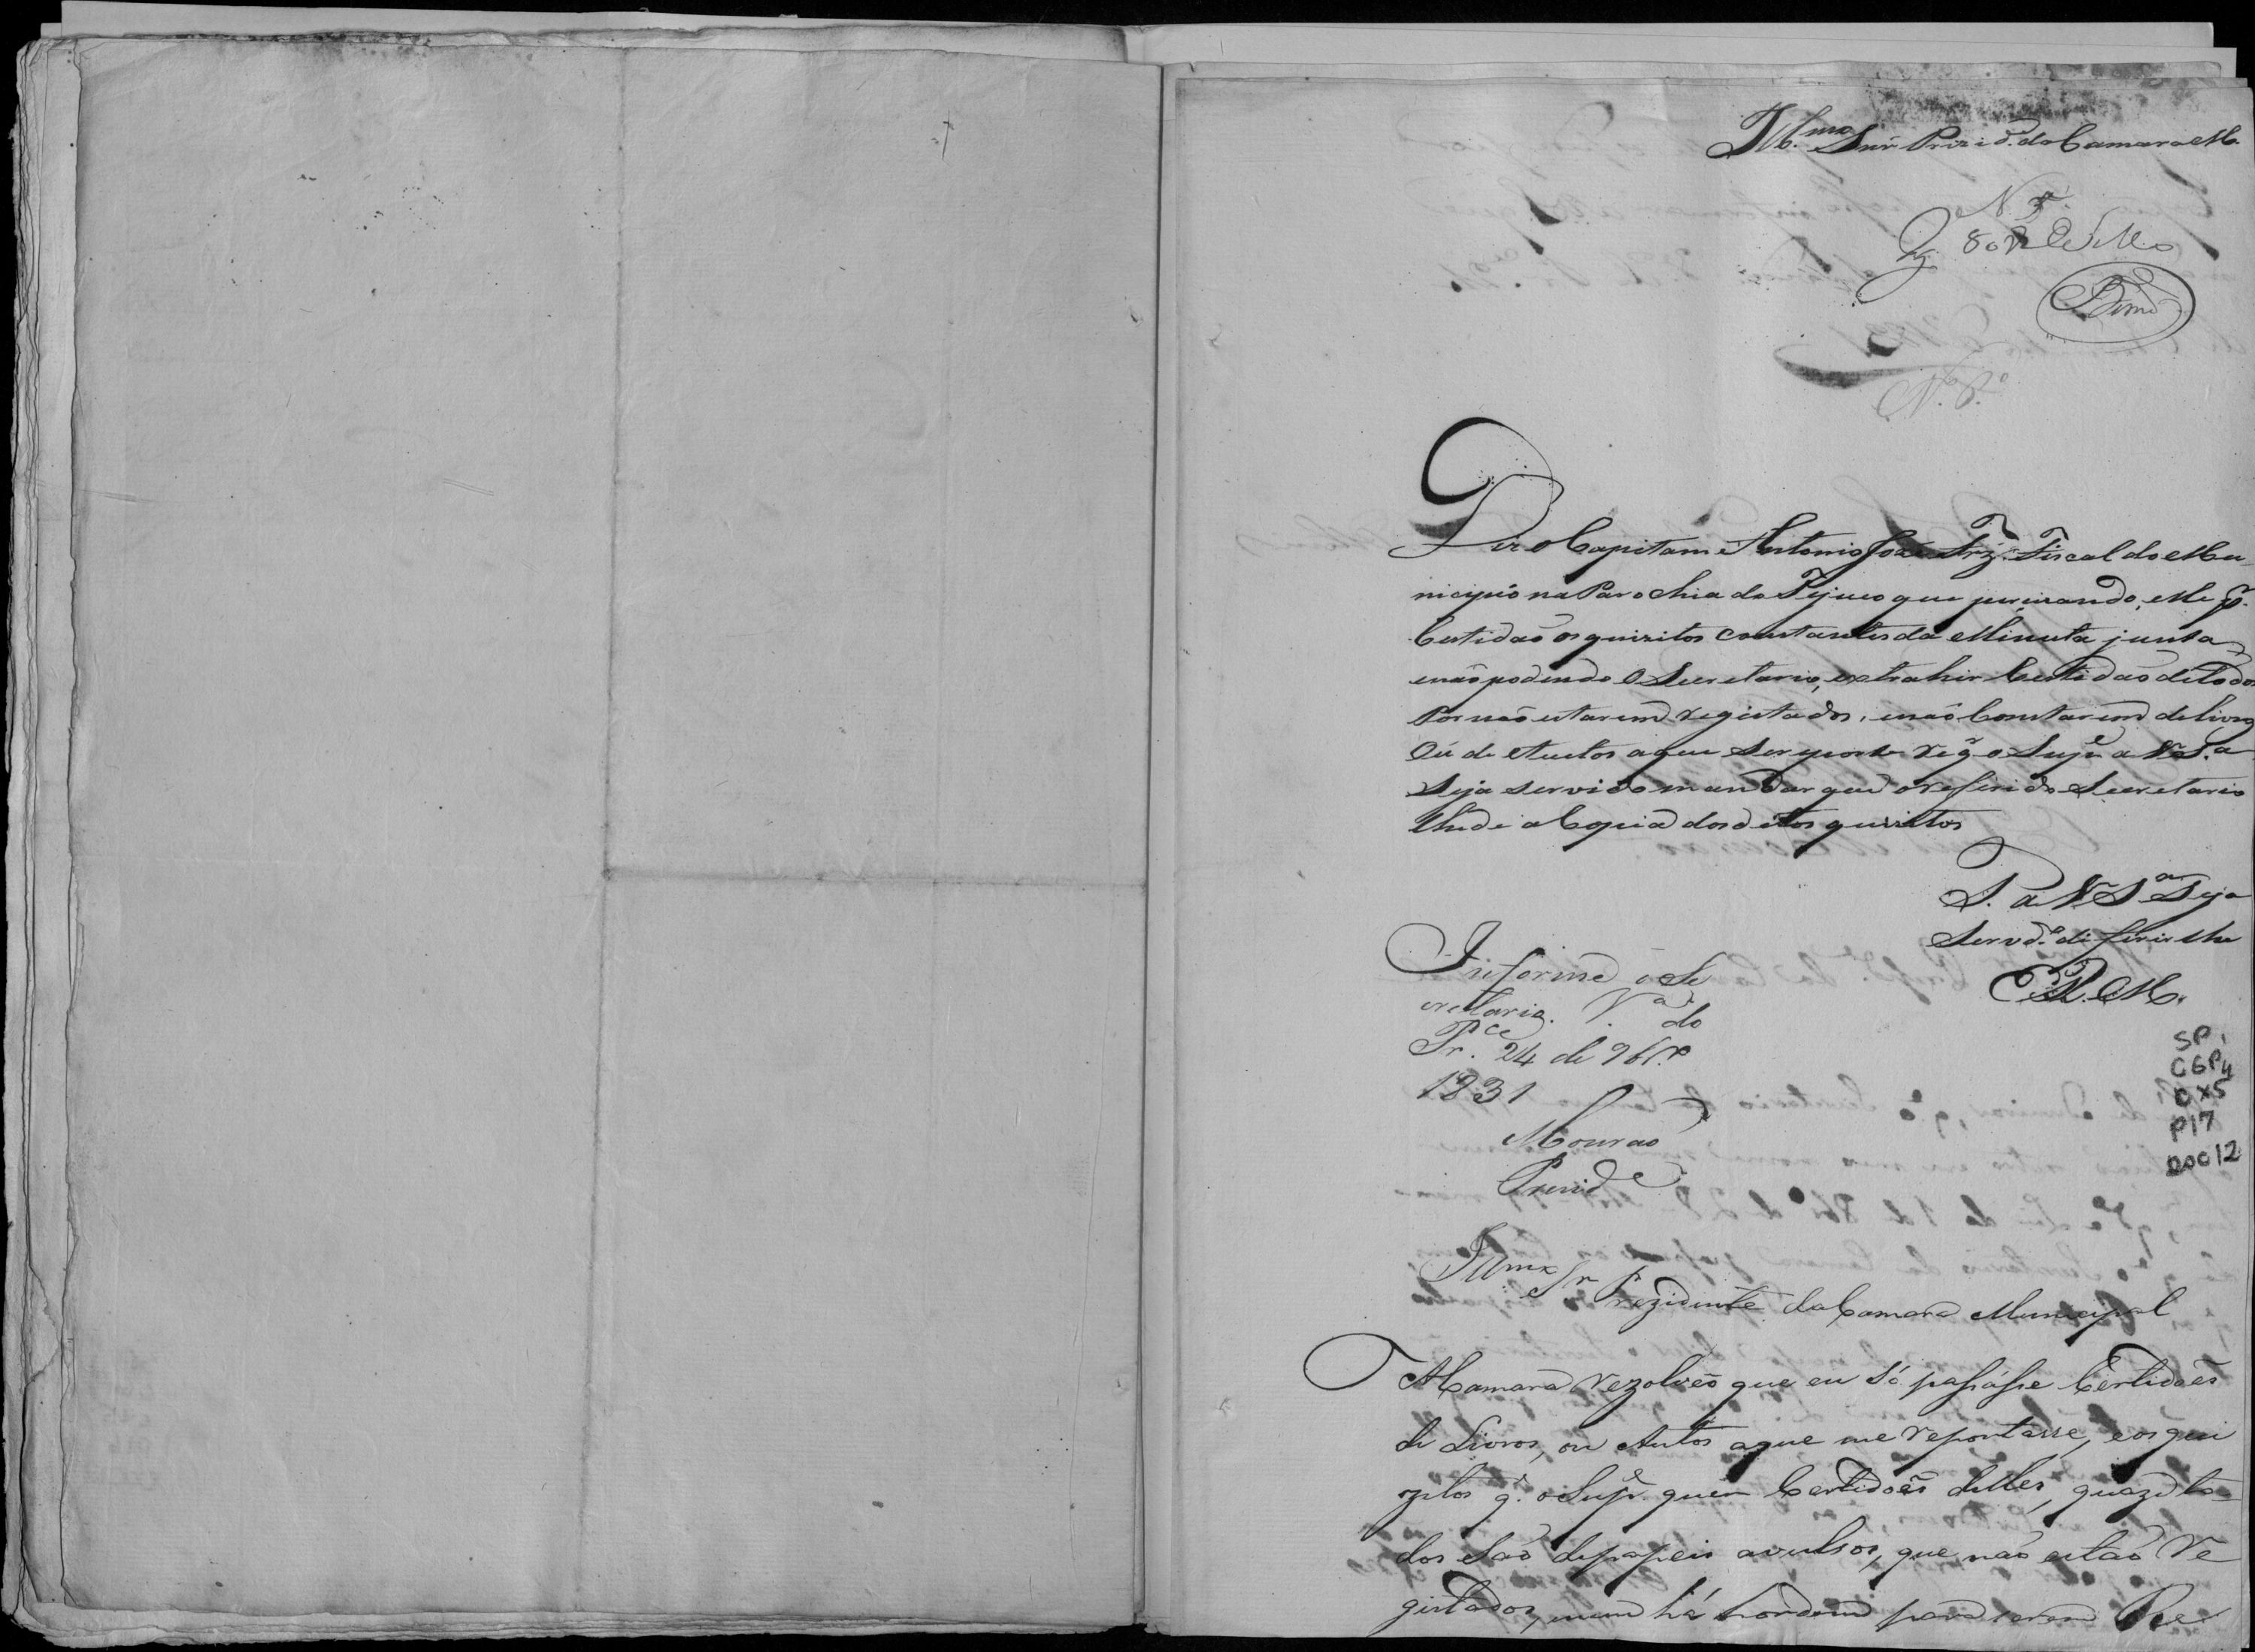 Ill.mo Snr Prezid.e da Camara M.
N. 3.
Pg. 80 r.s de Sello
N.º 8.º
Diz o Capitam Antonio José Frz.' Fiscal do Mu
nicipio na Parochia do Tejuco que percizando, elle p.
Certidaõ os quizitos constantes da Minuta junta
enaõ podendo o Secretario, extrahir Certidaõ de todos
Por naõ estarem registados, enaõ Constarem de livros
Oú de Autos aque Serreporte req.r o Sup.e a V.S.a
Seja servido mandar que o referido Secretario
lhe de a Copia dos ditos quizitos
P. a V S.a Seja
Servd.o diferir lhe
E. R. M.
Informe o Se
cretario. V.a do
Pr.ce 24 de 9br.o
1831
Mouraõ
Prezid.e
Illmo Sr Prezidente da Camara Municipal
A Camara rezolveo que eu só passásse Certidoẽs
de Livros, ou Autos aque me reportasse, e os qui
zitos q.' o Sup.e quer Certidoẽs delles, quaze to-
dos saõ de papeis avulsos, que naõ estaõ Re
gistados, nem há hordem para serem Re
SP,
CGP4
DX5
P17
D0012